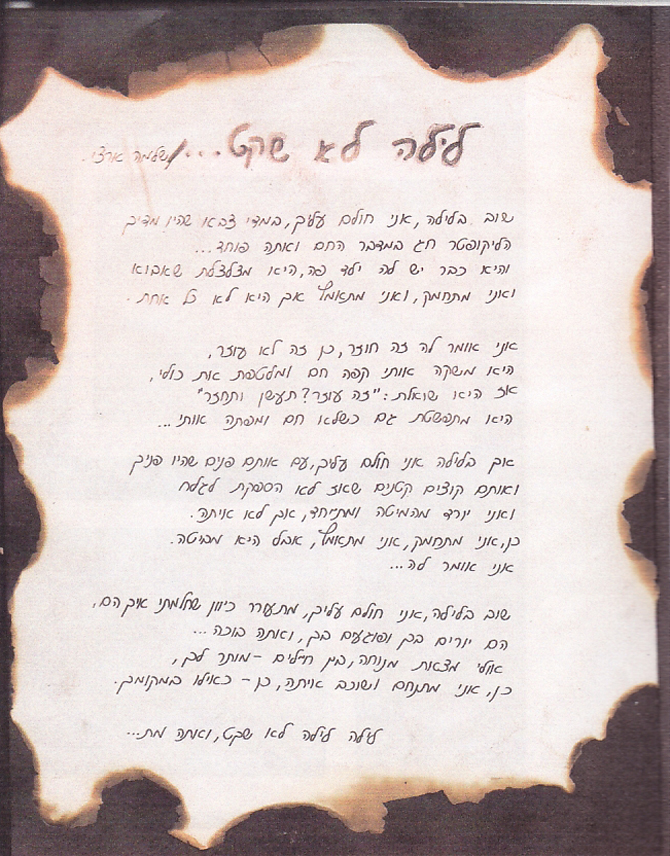 לילה לא שקט.../שלמה ארצי.
שוב בלילה, אני חולם עליך, במדי צבא שהיו מדיך
הליקופטר חג במדבר החם ואתה פוחד...
והיא כבר יש לה ילד פה, היא מצלצלת שאבוא
ואני מתחמק, ואני מתאמץ אך היא לא כל אחת.
אני אומר לה זה חוזר, כן זה לא עוזר,
היא משקה אותי קפה חם ומלטפת את כולי,
אז היא שואלת: "זה עוזר? תעשן ותחזר"
היא מתפשטת גם כשלא חם ומפתה אותי...
אך בלילה אני חולם עליך, עם אותם פנים שהיו פניך
ואותם קוצים קטנים שאז לא הספקת לגלח
ואני יורד מהמיטה ומתייחד, אך לא איתה.
כן, אני מתחמק, אני מתאמץ, אבל היא מביטה.
אני אומר לה...
שוב בלילה, אני חולם עליך, מתעורר כיוון שחלמתי איך הם,
הם יורים בך ופוגעים בך, ואתה בוכה...
אולי מצאת מנוחה, בין חיילים - מותר לך,
כן, אני מתנחם ושוכב איתה, כן - כאילו במקומך.
לילה לילה לא שקט, ואתה מת...